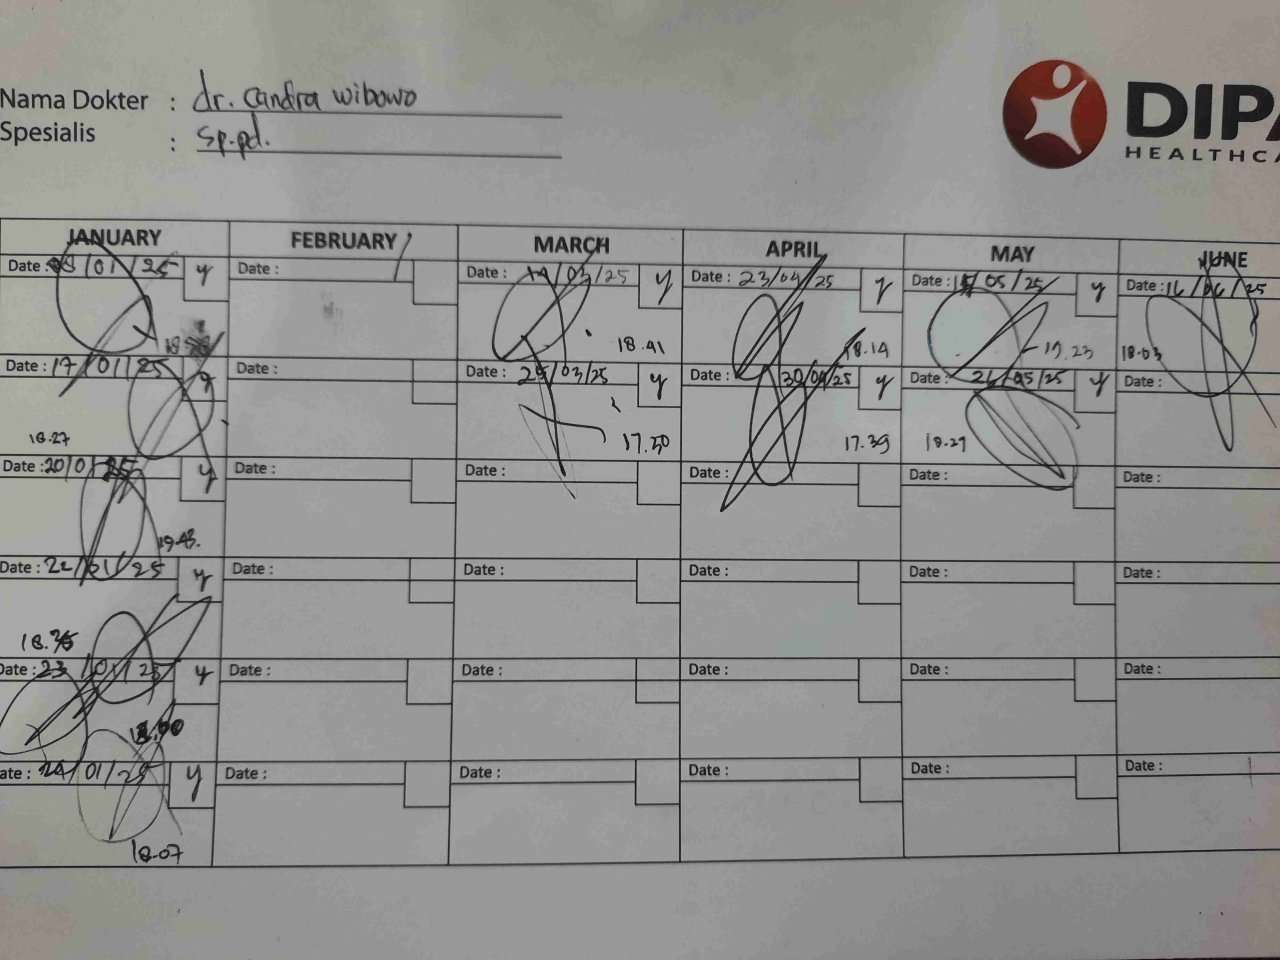 Nama Dokter : dr. Candra Wibowo
Spesialis : Sp.pd.
DIPA
HEALTHCA
JANUARY FEBRUARY MARCH APRIL MAY JUNE
Date : 08/01/25 y Date : Date : 19/03/25 y Date : 23/04/25 y Date : 15/05/25 y Date : 16/06/25
18.41 18.14 19.23 18.03
Date : 17/01/25 y Date : Date : 25/03/25 y Date : 30/04/25 y Date : 26/05/25 y Date :
18.27 17.50 17.39 18.29
Date : 20/01/25 y Date : Date : Date : Date : Date :
19.43.
Date : 22/01/25 y Date : Date : Date : Date : Date :
Date : 23/01/25 y Date : Date : Date : Date : Date :
ate : 24/01/25 y Date : Date : Date : Date : Date :
18.07